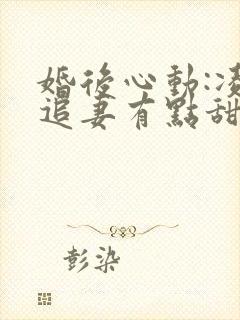 婚後心動:凌
追妻有點甜
彭染